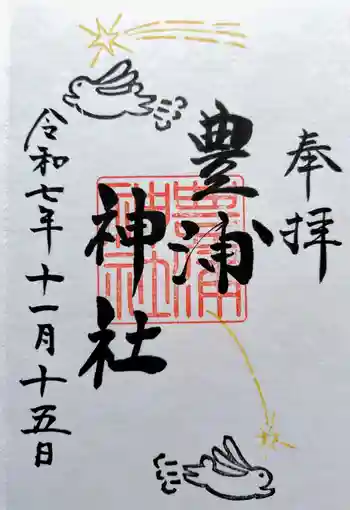 奉拝
豊浦
神社
令和七年十一月十五日
豊浦
神社